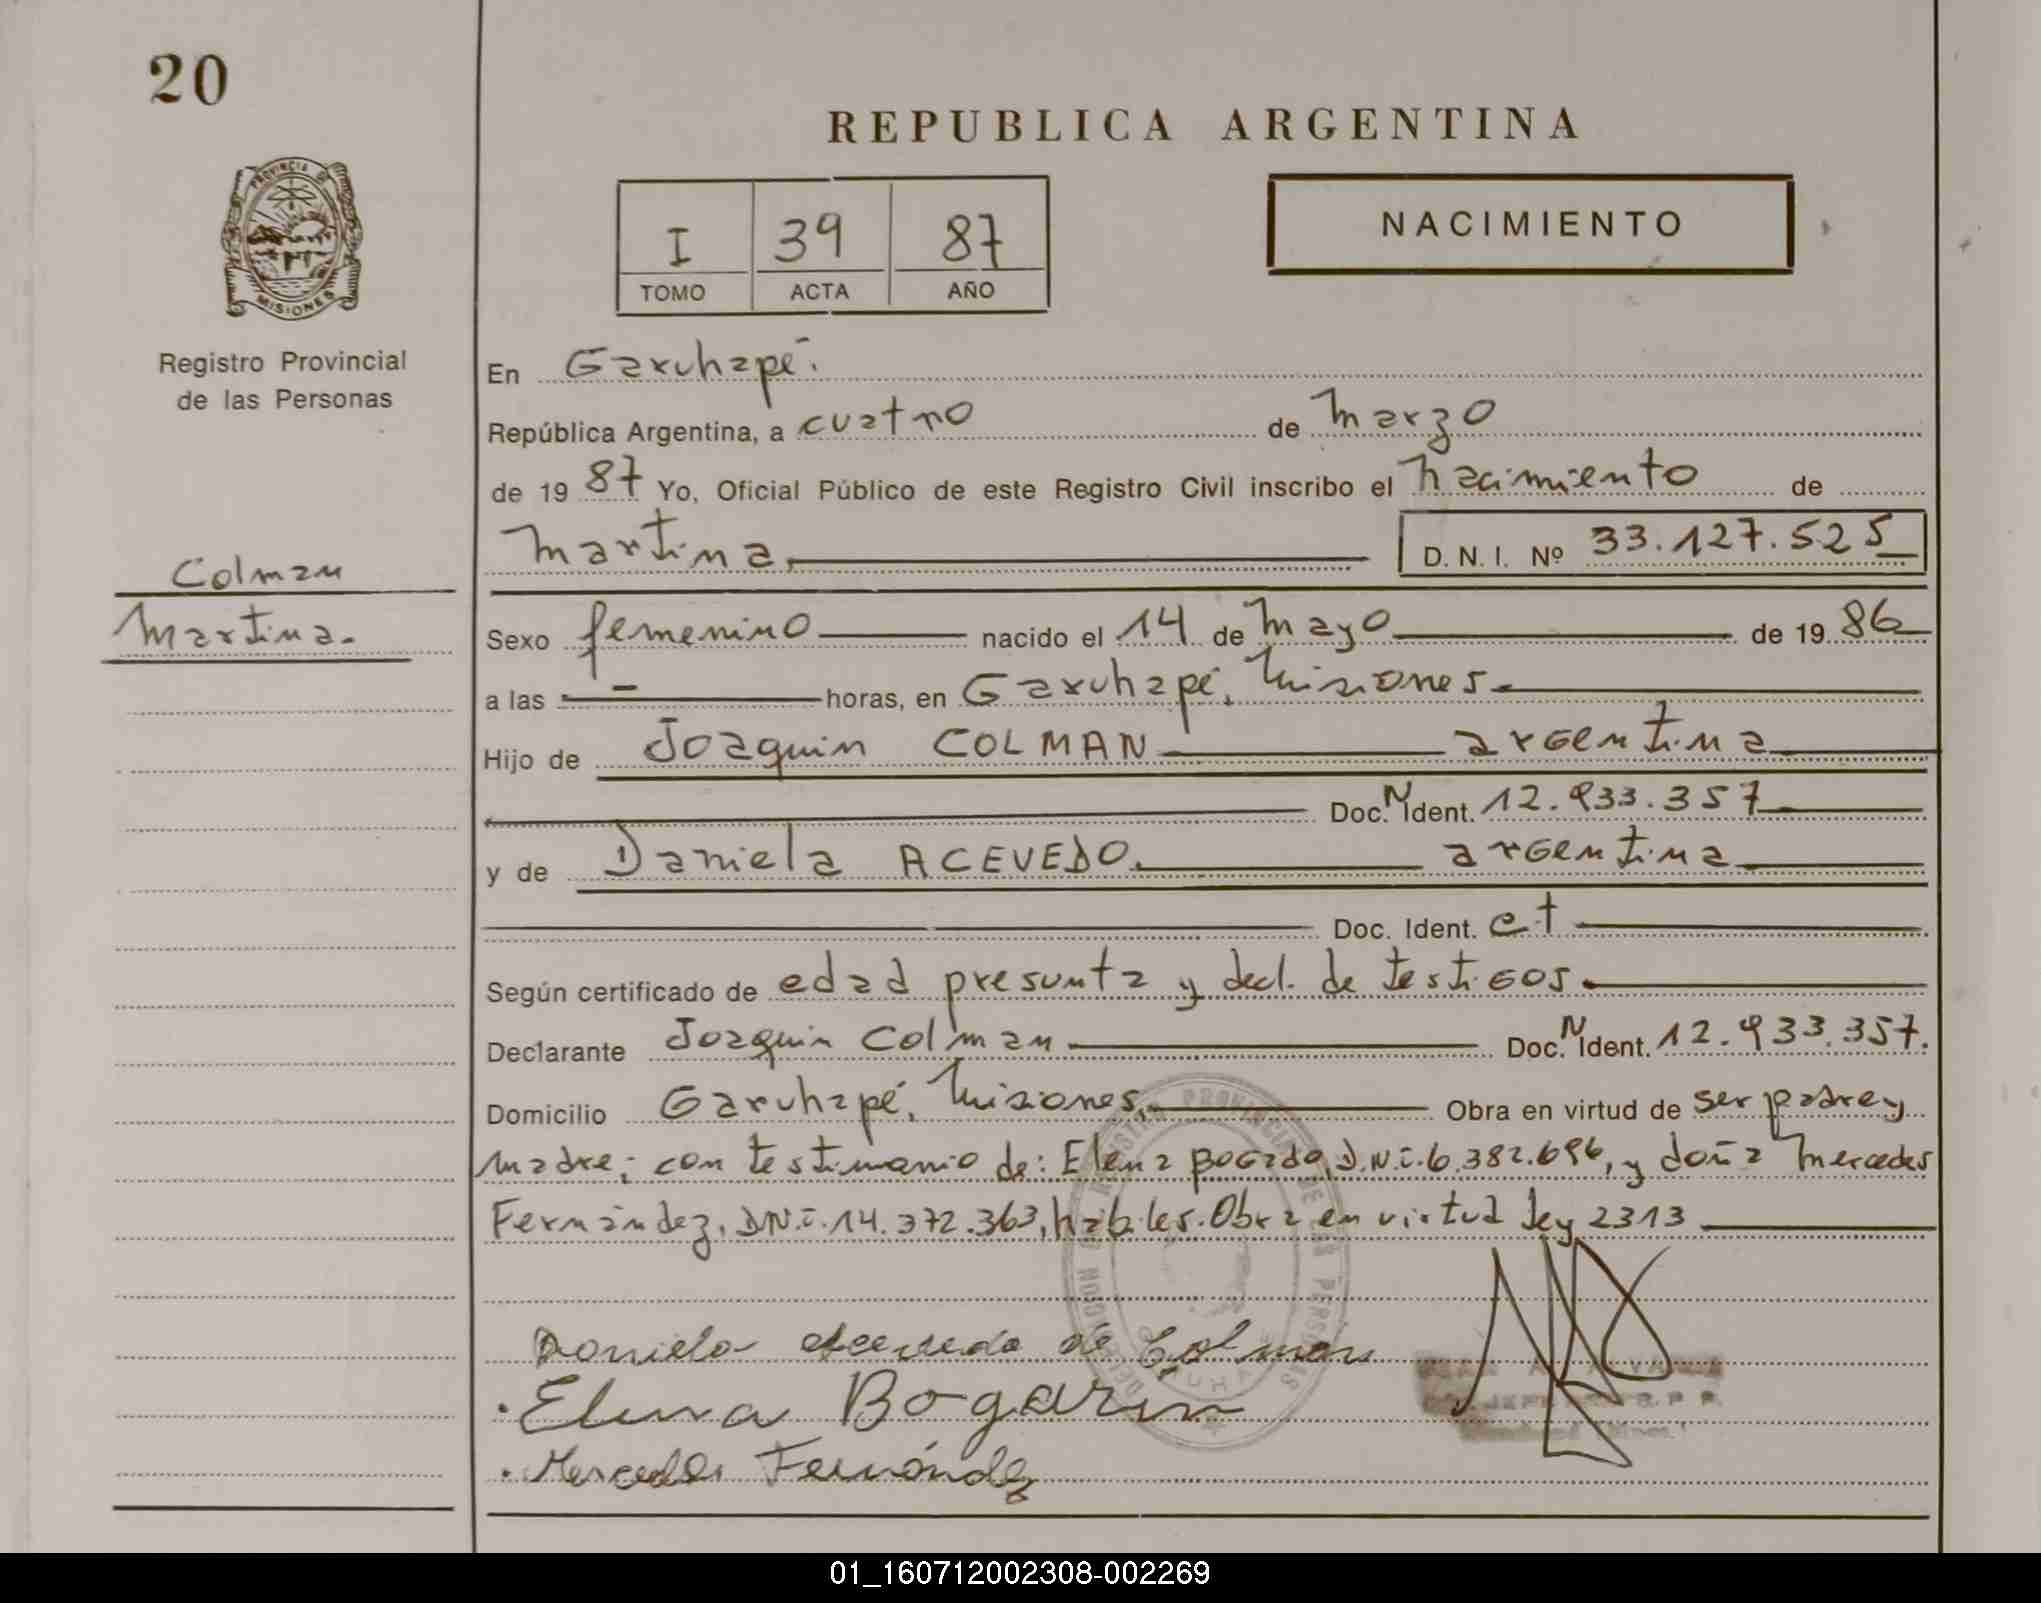 20
REPUBLICA ARGENTINA
PROVINCIA DE
MISIONES
Registro Provincial
de las Personas
I 39 87
TOMO ACTA AÑO
NACIMIENTO
En Garuhapé.
República Argentina, a cuatro de marzo
de 19 87 Yo, Oficial Público de este Registro Civil inscribo el nacimiento de
Martina. D. N. I. Nº 33.127.525
Colman
Martina.
Sexo femenino nacido el 14 de mayo de 19 86
a las — horas, en Garuhapé, Misiones.
Hijo de Joaquin COLMAN argentina
Doc. N Ident. 12.933.357
y de Daniela ACEVEDO. argentina
Doc. Ident. c.t
Según certificado de edad presunta y decl. de testigos.
Declarante Joaquin Colman Doc. N Ident. 12.933.357.
Domicilio Garuhapé, Misiones, Obra en virtud de ser padre y
madre; con testimonio de: Elena Bogado, D.N.i. 6.382.696, y doña Mercedes
Fernández, DN.i. 14.372.363, hábiles. Obra en virtud ley 2313
Daniela Acevedo de Colman
. Elena Bogarin
. Mercedes Fernández
01_160712002308-002269